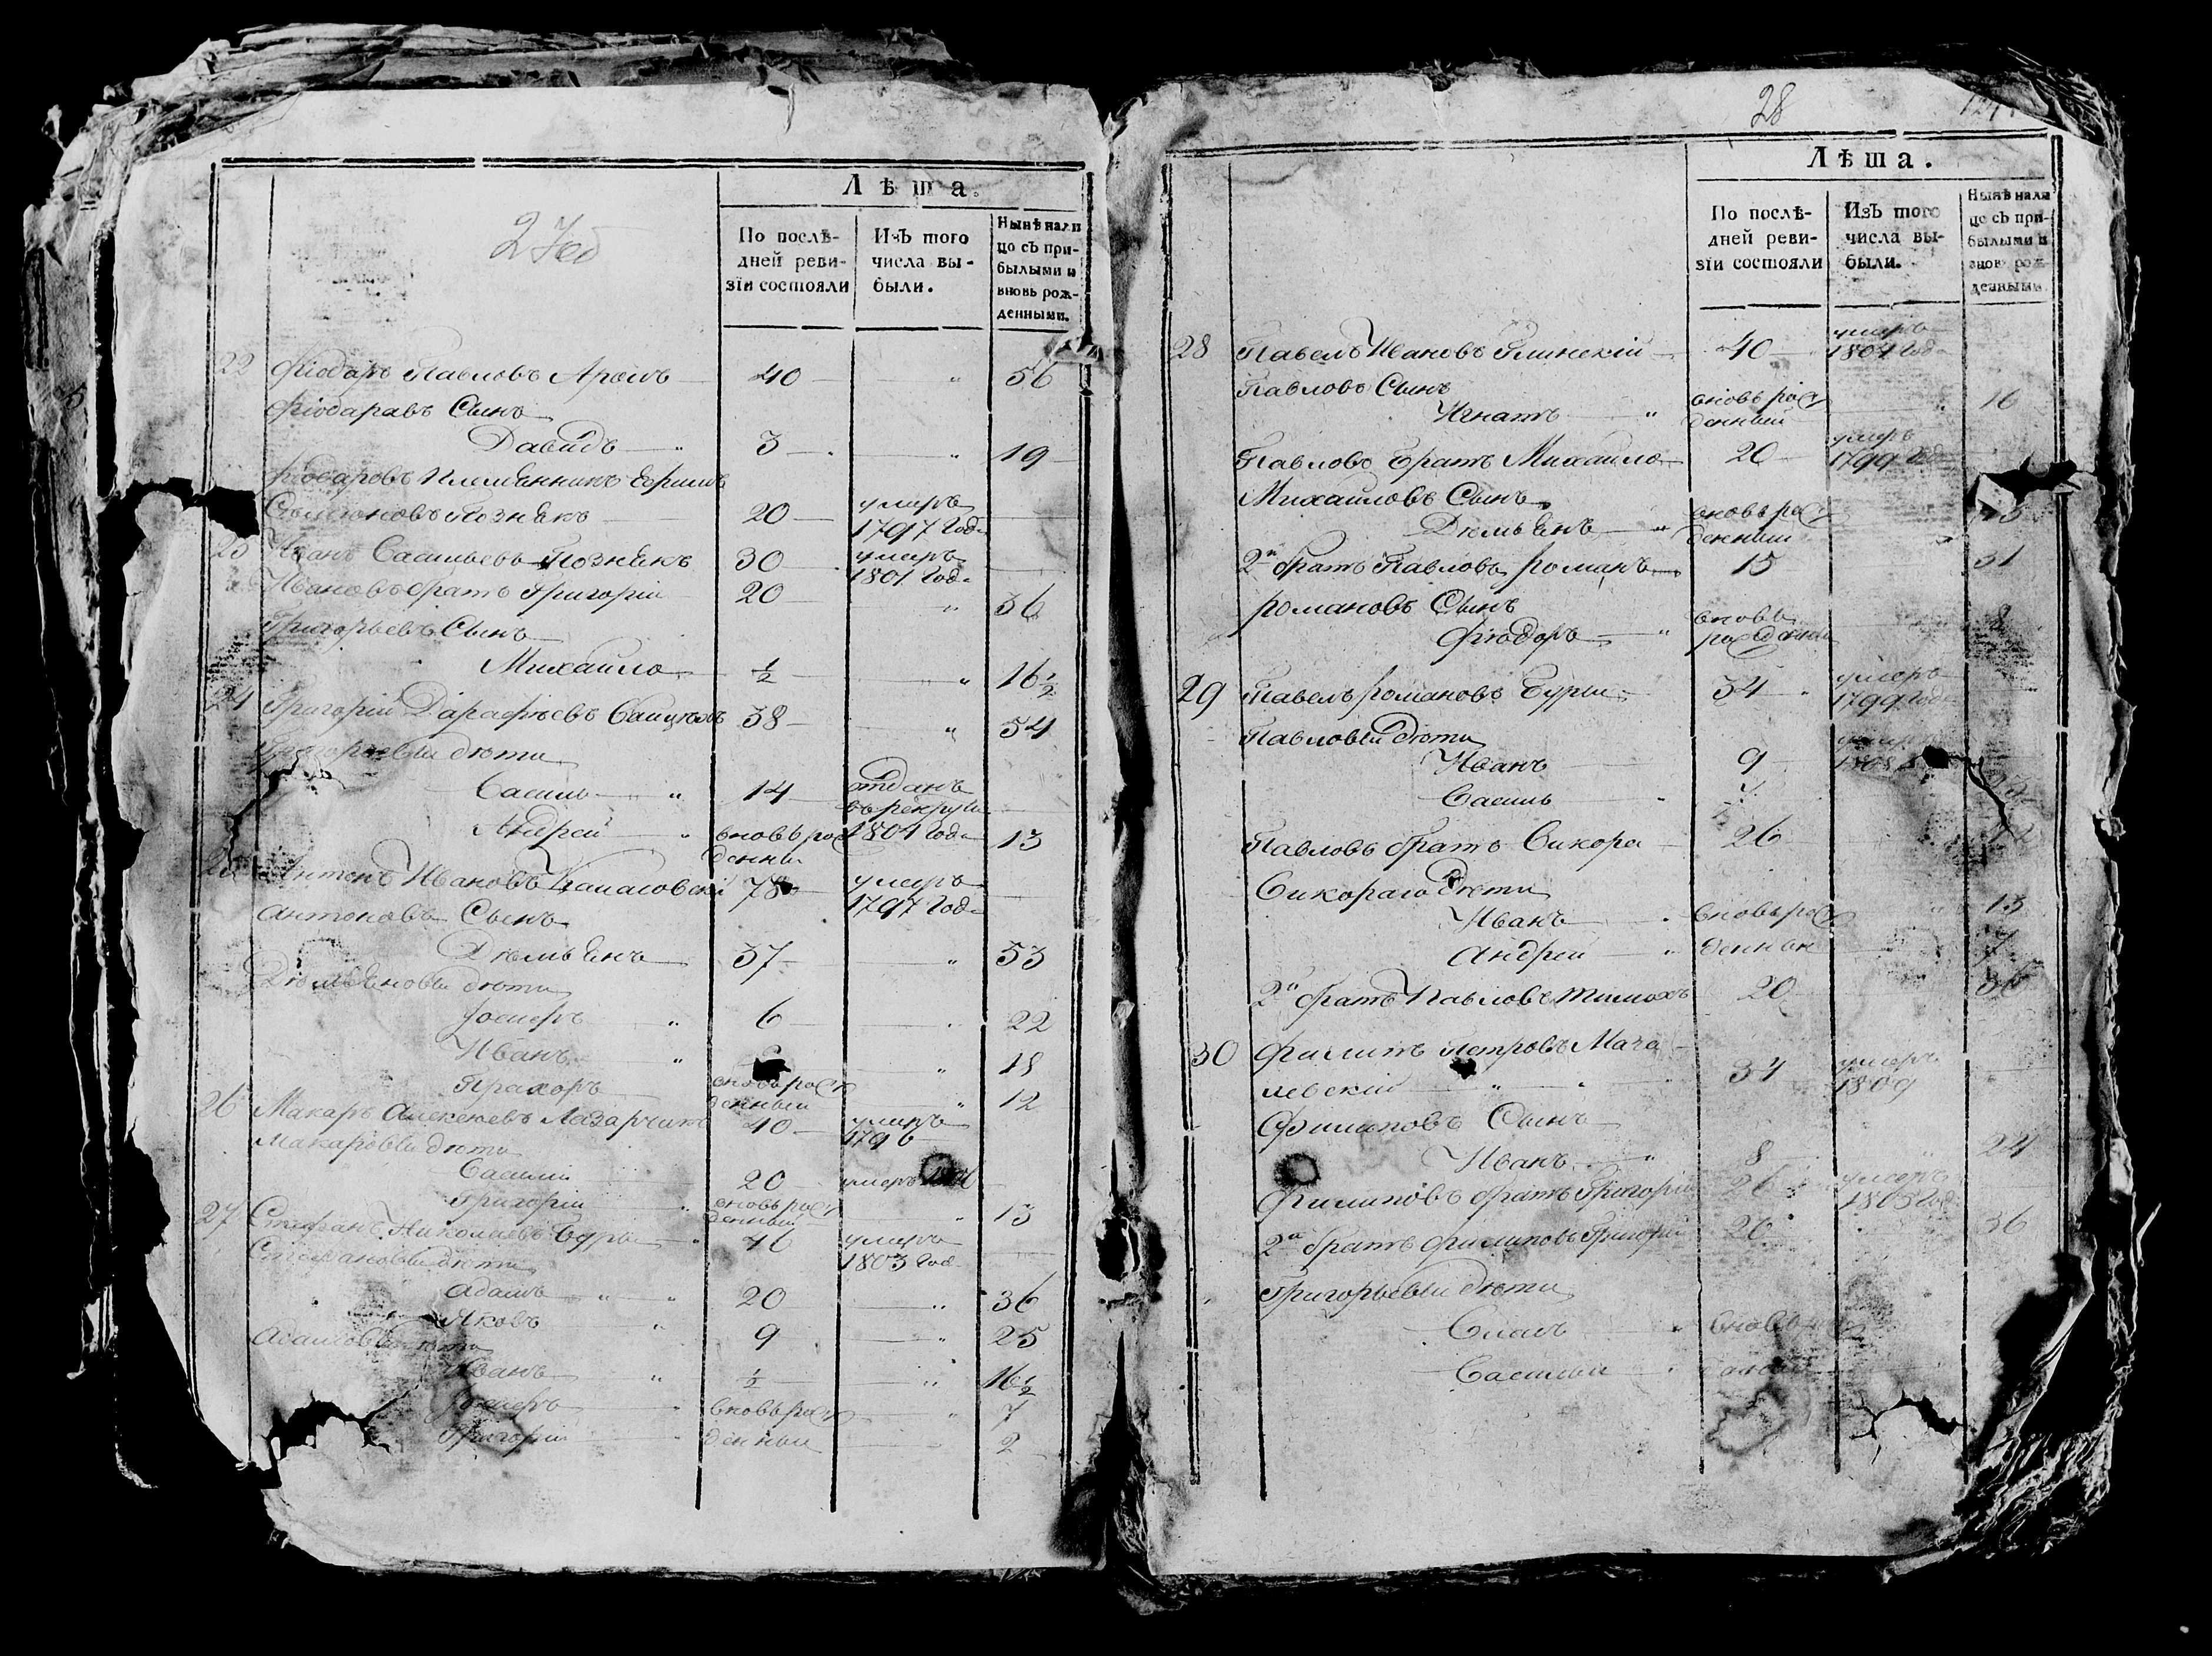 27об
Лѣта.
По послѣ-
дней реви-
зіи состояли
Изъ того
числа вы-
были.
Нынѣ нали
цо съ при-
былыми и
вновь рож-
денными.
22 Фіодоръ Павловъ 40 — " 56
Фіодаравъ Сынъ
Давидъ — " 3 — " 19
Фіодаровъ Племѣнникъ Ефимъ
Познѣкъ 20 — умеръ 1797 Года
23 Иванъ Васильевъ Познѣкъ 30 умеръ 1801 Года
Ивановъ братъ Григорій 20 — " 36
Григорьевъ Сынъ
Михайло ½ — " 16½
24 Григорій 38 — " 54
Григорьевы дѣти
Василь — " 14 — отданъ въ рекруты 1804 Года
Андрей — " вновь рожденны 13
Антонъ Ивановъ 78 — умеръ 1797 Года
Антоновъ Сынъ
Дѣмьѣнъ 37 — " 53
Дѣмьѣновы дѣти
Іосифъ " 6 — " 22
Иванъ " — " 18
Прахоръ вновь рожденный " 12
26 Макаръ Алексѣевъ 40 — умеръ 1796
Макаровы дѣти
Василій 20 умеръ
Григорій " вновь рожденный " 13
27 Стефанъ Николаевъ 46 умеръ 1803 Год
Стефановы дѣти
Адамъ " " 20 — " 36
Яковъ " 9 — " 25
Адамовы дѣти
Иванъ " ½ — " 16½
Іосифъ " вновь рож — " 7
Григорій денны — 2
28
Лѣта.
По послѣ-
дней реви-
зіи состояли
Изъ того
числа вы-
были.
Нынѣ нали
цо съ при-
былыми и
вновь рож-
денными
28 Павелъ Ивановъ Глинскій — 40 — умеръ 1804 Года
Павловъ Сынъ
Игнатъ — " вновь рожденный " 16
Павловъ братъ Михайло — 20 — умеръ 1799 Года
Михайловъ Сынъ
Дѣмьѣнъ — " вновь рожденный "
2й братъ Павловъ романъ — 15 31
романовъ Сынъ
Фіодоръ — " вновь рожденны 8
29 Павелъ романовъ 34 умеръ 1799 Года
Павловы дѣти
Иванъ 9 умеръ
Василь
Павловъ братъ Сикора — 26
Сикораго дѣти
Иванъ вновь рож " 13
Андрей — " денны 7
2й братъ Павловъ Тимохъ 20 36
30 Филипъ Петровъ Мача-
левскій " " 34 умеръ 1809
Филиповъ Сынъ
Иванъ " 8 24
Филиповъ братъ Григорій 26 умеръ 1805 Год
2й братъ Филиповъ Григорій 20 36
Григорьевы дѣти
вновь
Василій